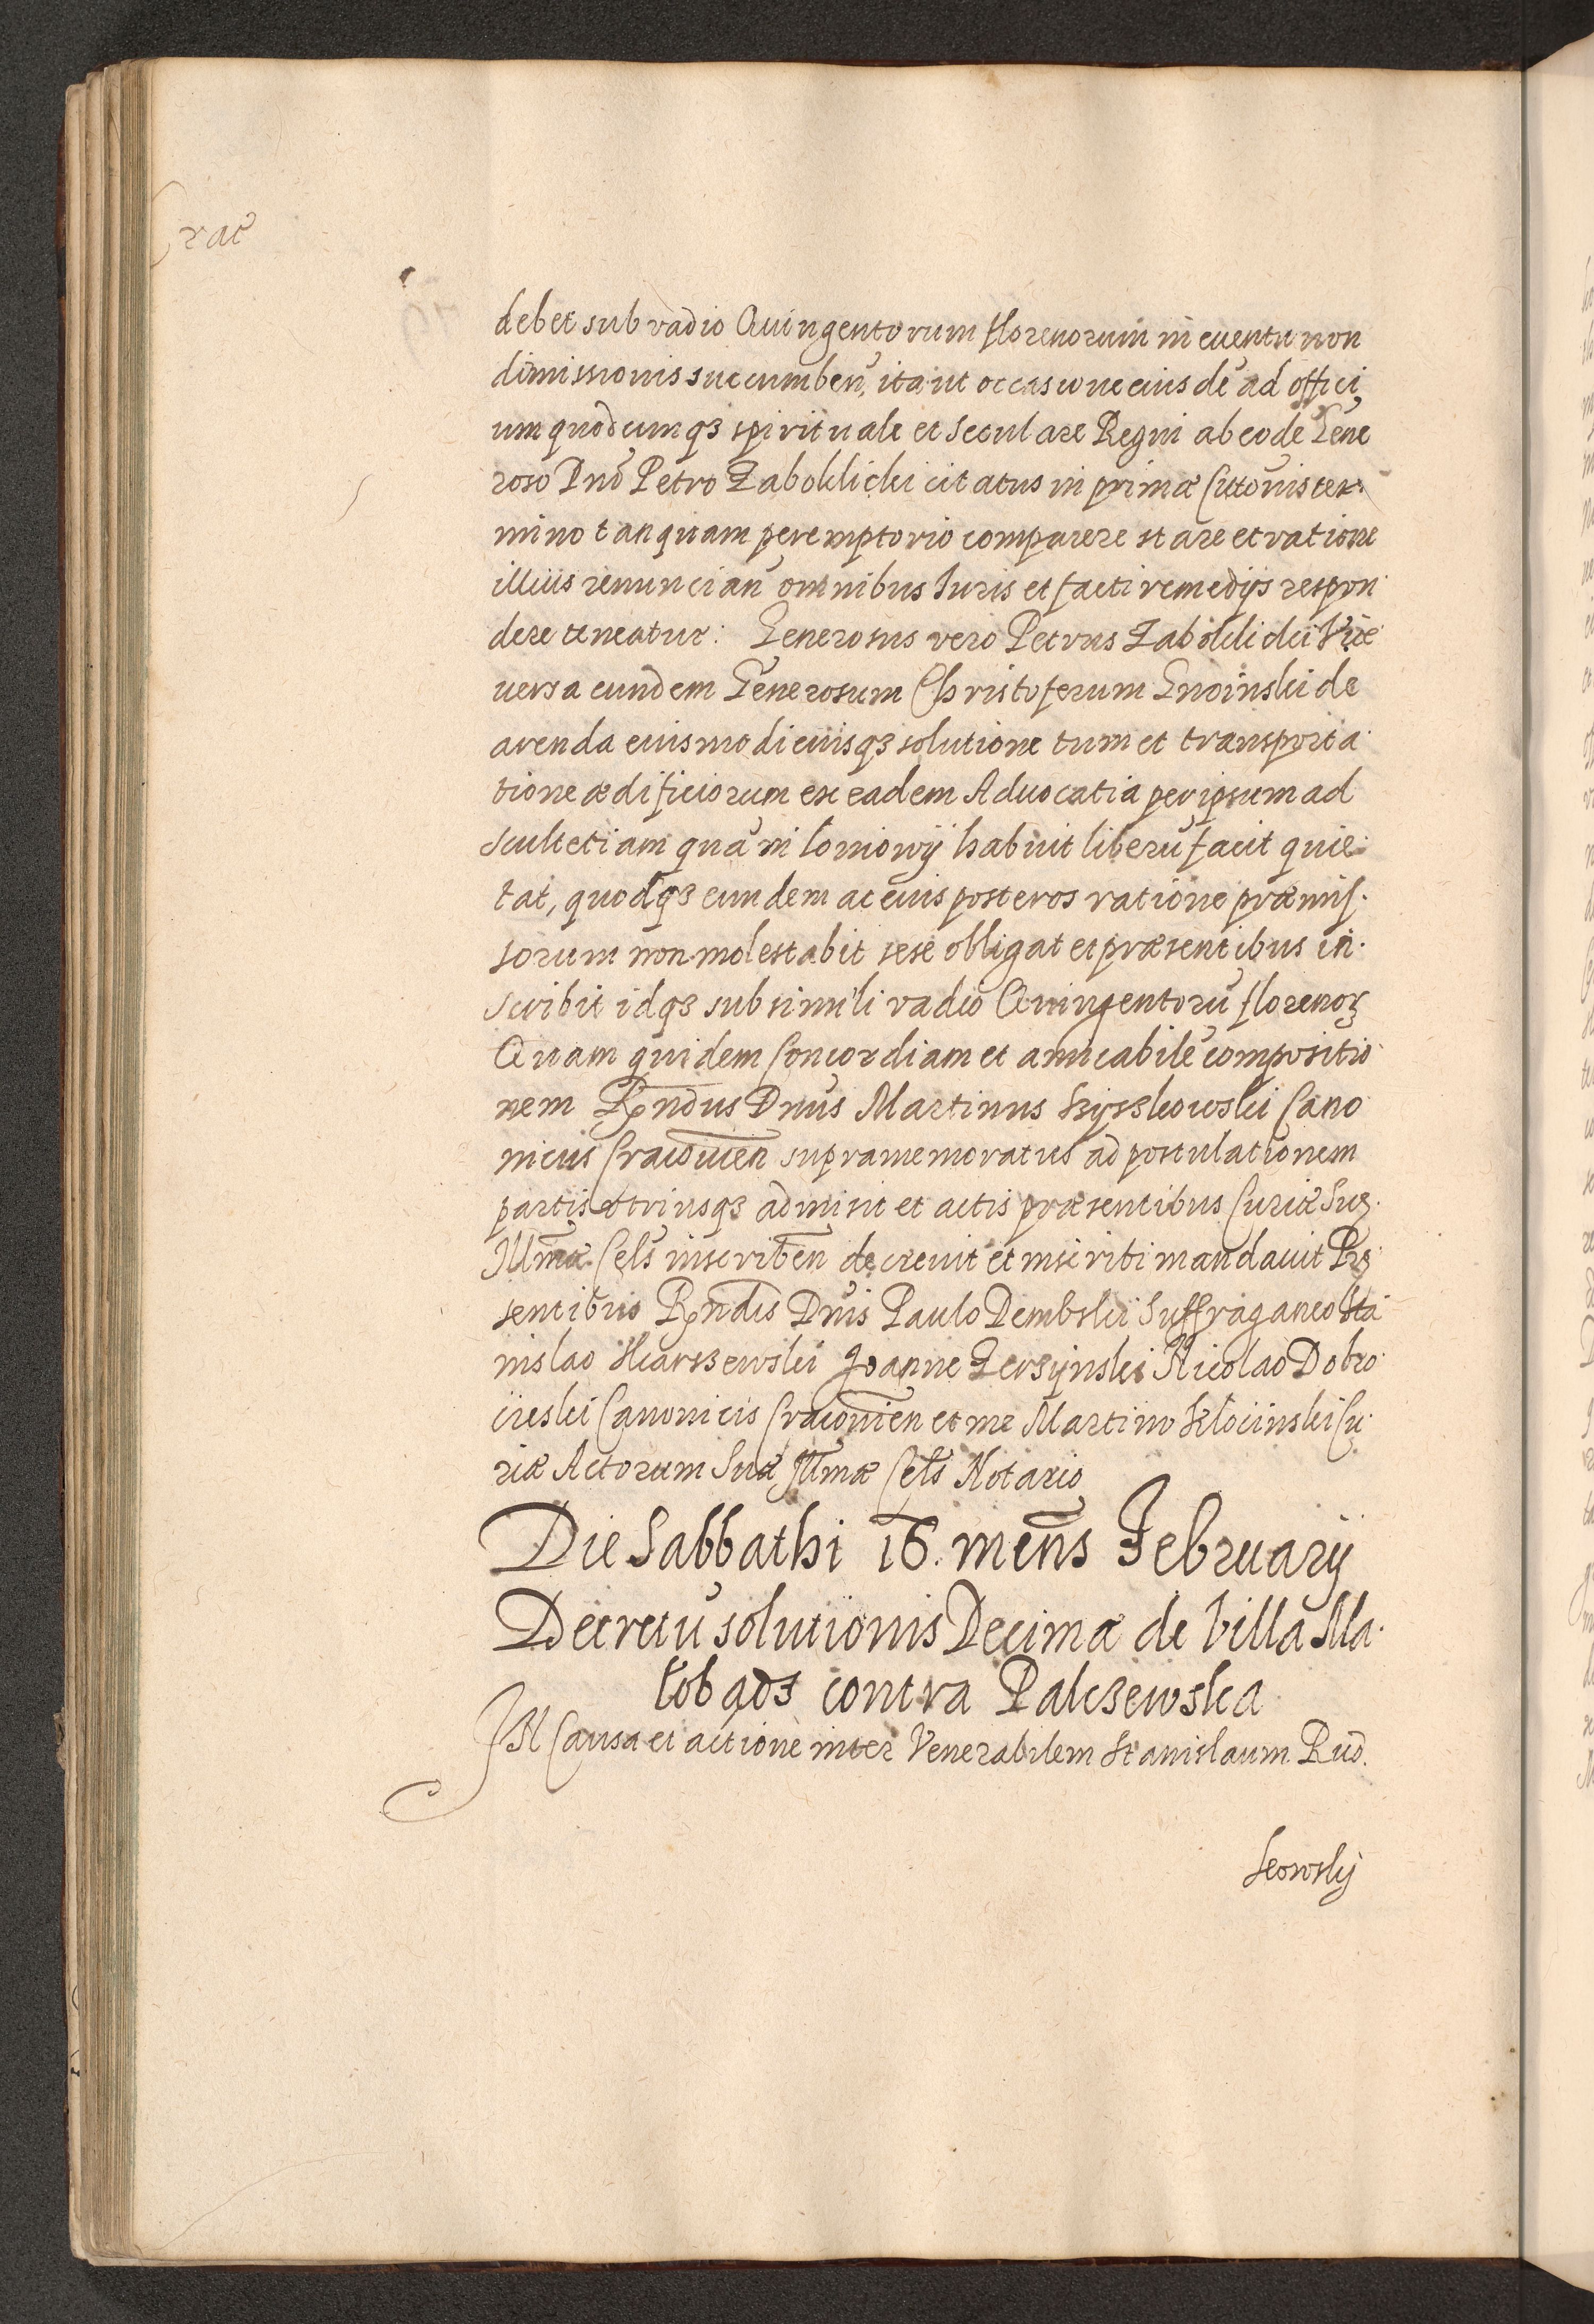 Crac
debet sub vadio Quingentorum florenorum in euentu non
dimissionis succumbeñ, ita ut occasione eiusdē ad offici,
um quodcumqʒ spirituale et seculare Regni ab eodē Gene
roso Dnō Petro Zaboklicki citatus in primæ Citōnis ter.
mino tanquam peremptorio comparere stare et ratione
illius renuncian̄ omnibus Iuris et facti remedijs respon
dere teneatur: Generosus vero Petrus Zaboklicki Vice
uersa eundem Generosum Christoferum Gnoinski de
arenda eiusmodi eiusqʒ solutione tum et transporta
tione ædificiorum ex eadem Aduocatia per ipsum ad
scultetiam quā in Łoniowÿ habuit liberū facit quie
tat, quodqʒ eundem ac eius posteros ratione præmis.
sorum non molestabit sese obligat et præsentibus in.
scribit idqʒ sub simili vadio Quingentorū florenorꝝ
Quam quidem Concordiam et amicabilē compositio
nem Rn̄dus Dnūs Martinus Szÿszkowski Cano
nicus Cracouien̄ supramemoratus ad postulationem
partis vtriusqʒ admisit et actis præsentibus Curiæ Suę
Illmæ Cels inscriben̄ decreuit et inscribi mandauit Prę
sentibus Rn̄dis Dnīs Paulo Dembski Suffraganeo Sta
nislao Skarszewski Joanne Gerzÿnski Nicolao Dobro
cieski Canonicis Cracouien̄ et me Martino Kłocinski Cu
riæ Actorum Suæ Illmæ Cels Notario
Die Sabbathi 16. mens̄ Februarÿ
Decretū solutionis Decimæ de Villa Ma
łobądz contra Palczewska
IN Causa et actione inter Venerabilem Stanislaum Rud.
kowskÿ